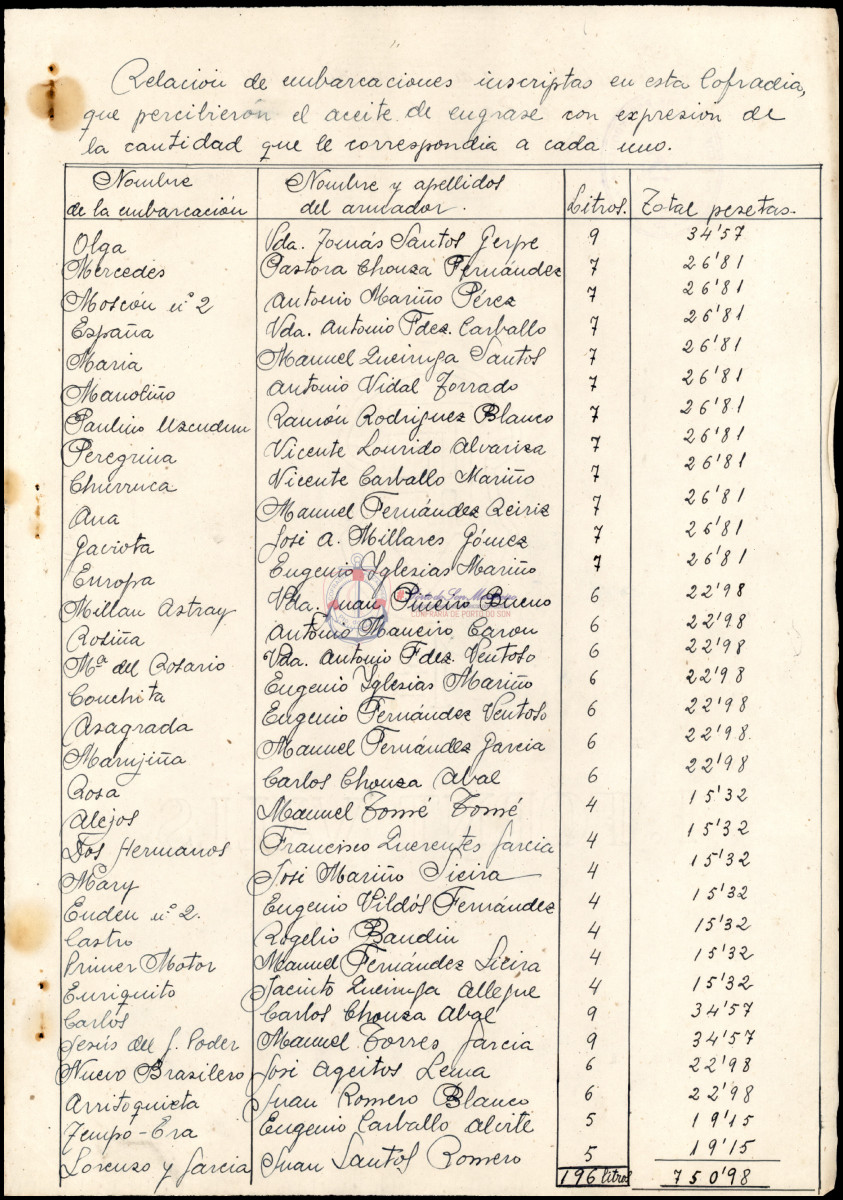 Relación de embarcaciones inscriptas en esta Cofradia,
que percibierón el aceite de engrase con expresion de
la cantidad que le correspondia a cada uno.
Nombre de la embarcación Nombre y apellidos del armador. Litros. Total pesetas.
Olga Vda. Tomás Santos Gerpe 9 34'57
Mercedes Pastora Chouza Fernández 7 26'81
Moscón nº 2 Antonio Mariño Pérez 7 26'81
España Vda. Antonio Fdez. Carballo 7 26'81
Maria Manuel Queiruga Santos 7 26'81
Manoliño Antonio Vidal Torrado 7 26'81
Paulino Uzcudum Ramón Rodriguez Blanco 7 26'81
Peregrina Vicente Lourido Alvariza 7 26'81
Churruca Vicente Carballo Mariño 7 26'81
Ana Manuel Fernández Reiriz 7 26'81
Gaviota José A. Millares Gómez 7 26'81
Europa Eugenio Yglesias Mariño 7 26'81
Millan Astray Vda. Juan Piñeiro Bueno 6 22'98
Rosiña Antonio Maneiro Caron 6 22'98
Mª del Rosario Vda. Antonio Fdez. Ventoso 6 22'98
Conchita Eugenio Yglesias Mariño 6 22'98
Asagrada Eugenio Fernández Ventoso 6 22'98
Marujiña Manuel Fernández Garcia 6 22'98
Rosa Carlos Chouza Abal 6 22'98
Alejos Manuel Tomé Tomé 4 15'32
Dos Hermanos Francisco Querentes Garcia 4 15'32
Mary José Mariño Sieira 4 15'32
Euden nº 2. Eugenio Vildós Fernández 4 15'32
Castro Rogelio Baudin 4 15'32
Primer Motor Manuel Fernández Sieira 4 15'32
Enriquito Jacinto Queiruga Allegue 4 15'32
Carlos Carlos Chouza Abal 9 34'57
Jesús del G. Poder Manuel Torres Garcia 9 34'57
Nuevo Brasilero José Ageitos Lema 6 22'98
Arritoquieta Juan Romero Blanco 6 22'98
Tempo-Era Eugenio Carballo Alvite 5 19'15
Lorenzo y Garcia Juan Santos Romero 5 19'15
196 litros 750'98
CONFRARÍA DE PORTO DO SON